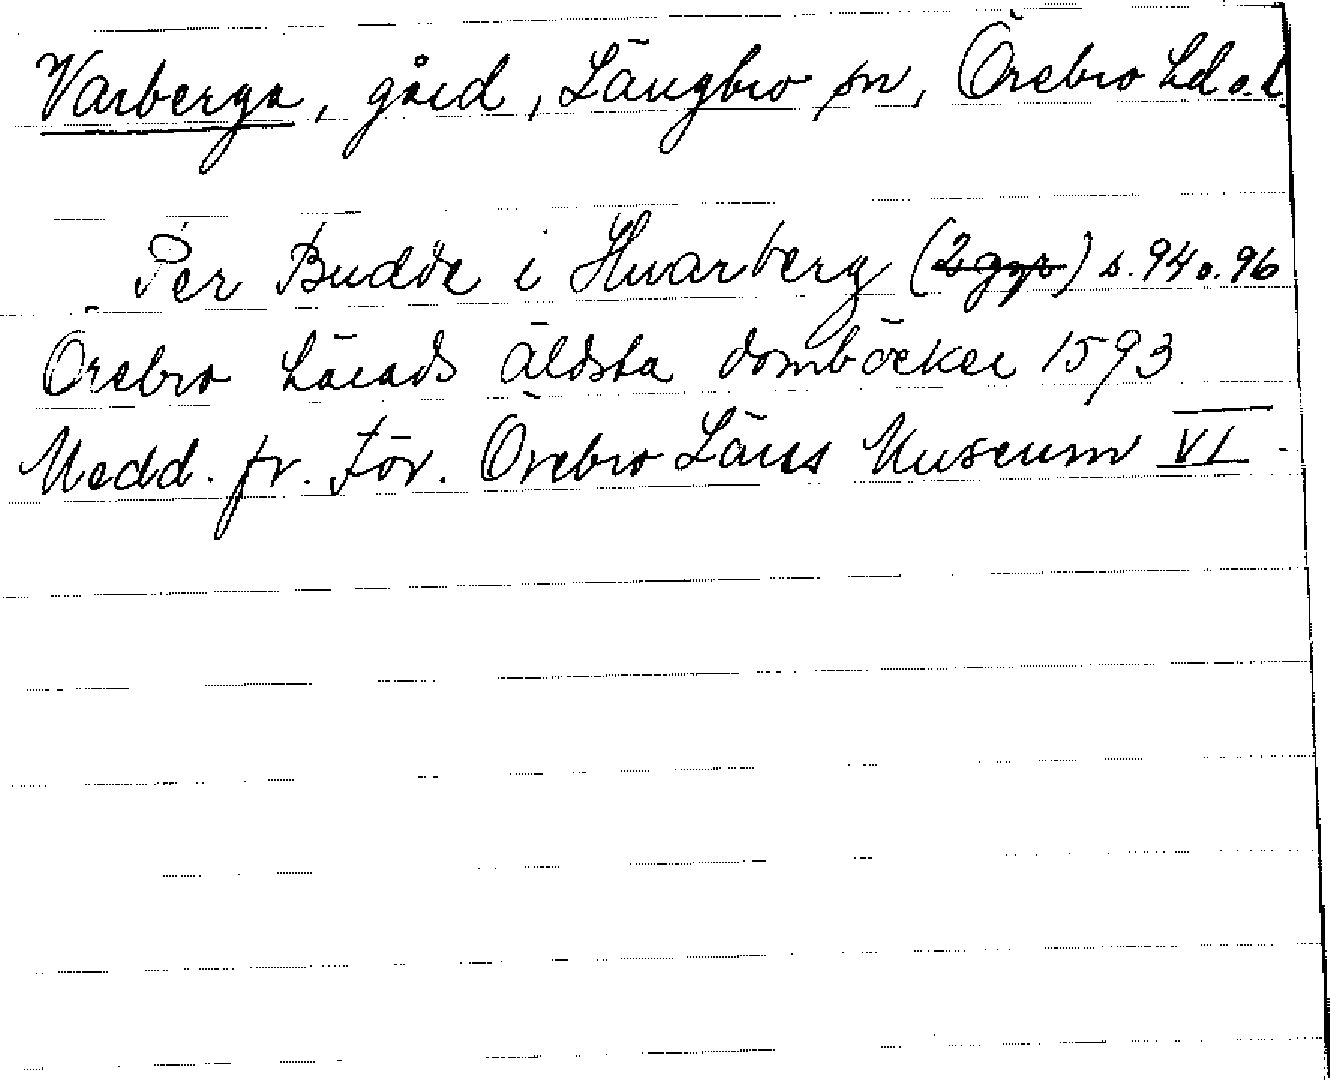 Varberga, gård, Längbro sn, Örebro hd o. l.
Per Budde i Hvarberg (2 ggr) s. 94 o. 96
Örebro härads äldsta domböcker 1593
Medd. fr. För. Örebro Läns Museum VI.